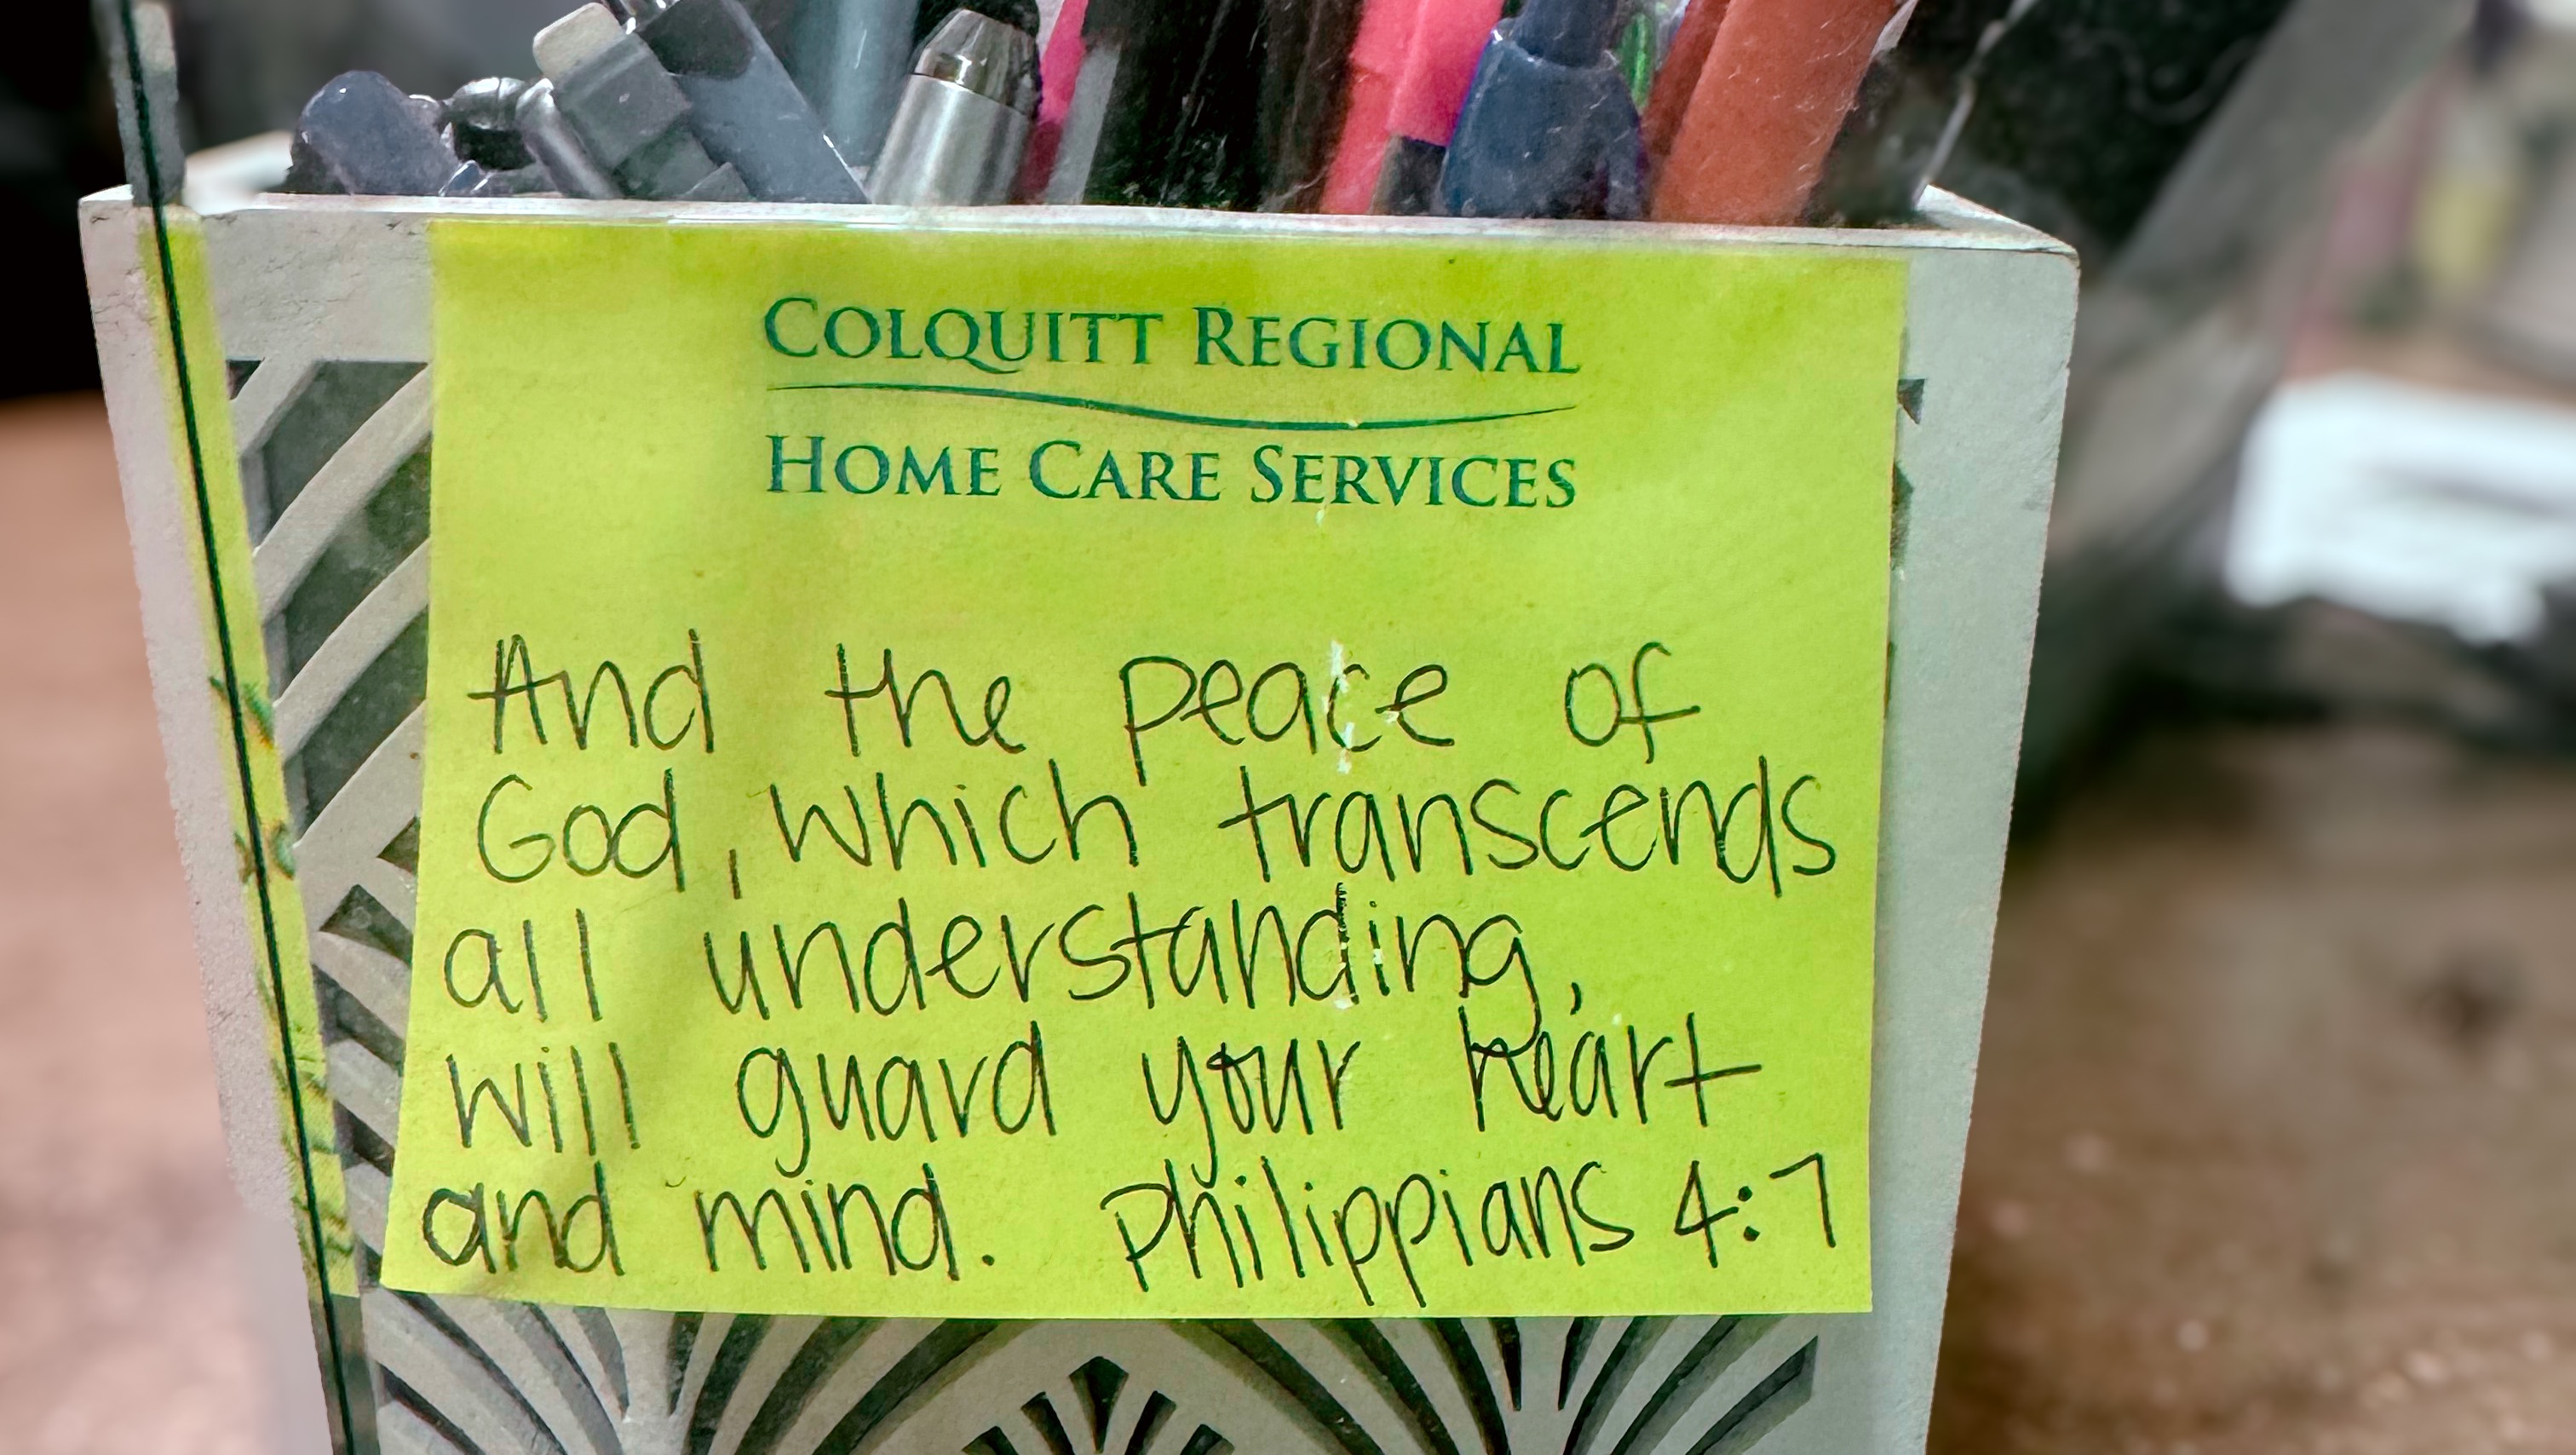 COLQUITT REGIONAL
HOME CARE SERVICES
And the peace of
God, which transcends
all understanding,
will guard your heart
and mind. Philippians 4:7